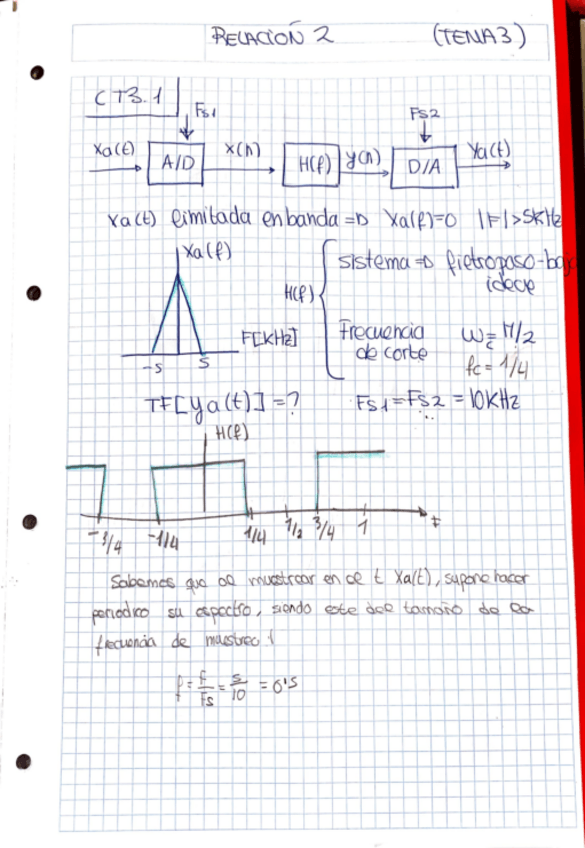 RELACIÓN 2 (TEMA3)
CT3.1
Fs1 Fs2
Xa(t) A/D x(n) H(f) y(n) D/A Ya(t)
Xa(t) limitada en banda => Xa(f)=0 |F|>5KHz
Xa(f)
H(f) sistema => filtro paso-bajo
ideal
F[KHz] Frecuencia de corte Wc = π/2
fc = 1/4
-5 5
TF[Ya(t)] = ? Fs1 = Fs2 = 10KHz
H(f)
-3/4 -1/4 1/4 1/2 3/4 1 f
Sabemos que al muestrear en el t Xa(t), supone hacer
periodico su espectro, siendo este del tamaño de la
frecuencia de muestreo!
f = F/Fs = 5/10 = 0'5